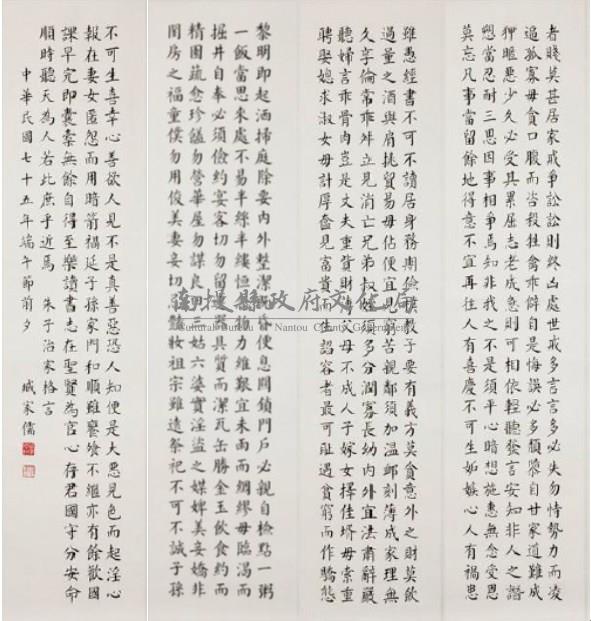 黎明即起洒掃庭除要內外整潔既昏便息關鎖門戶必親自檢點一粥
一飯當思來處不易半絲半縷恒念物力維艱宜未雨而綢繆毋臨渴而
掘井自奉必須儉約宴客切勿留連器具質而潔瓦缶勝金玉飲食約而
精園蔬愈珍饈勿營華屋勿謀良田三姑六婆實淫盜之媒婢美妾嬌非
閨房之福童僕勿用俊美妻妾切忌豔妝祖宗雖遠祭祀不可不誠子孫
雖愚經書不可不讀居身務期儉樸教子要有義方莫貪意外之財莫飲
過量之酒與肩挑貿易毋佔便宜見窮苦親鄰須加溫卹刻薄成家理無
久享倫常乖舛立見消亡兄弟叔姪須多分潤寡長幼內外宜法肅辭嚴
聽婦言乖骨肉豈是丈夫重貲財薄父母不成人子嫁女擇佳壻毋索重
聘娶媳求淑女毋計厚奩見富貴而生諂容者最可恥遇貧窮而作驕態
者賤莫甚居家戒爭訟訟則終凶處世戒多言言多必失勿恃勢力而凌
逼孤寡毋貪口腹而恣殺牲禽乖僻自是悔誤必多頹隳自甘家道難成
狎暱惡少久必受其累屈志老成急則可相依輕聽發言安知非人之譖
愬當忍耐三思因事相爭焉知非我之不是須平心暗想施惠無念受恩
莫忘凡事當留餘地得意不宜再往人有喜慶不可生妒嫉心人有禍患
不可生喜幸心善欲人見不是真善惡恐人知便是大惡見色而起淫心
報在妻女匿怨而用暗箭禍延子孫家門和順雖饔飧不繼亦有餘歡國
課早完即囊橐無餘自得至樂讀書志在聖賢為官心存君國守分安命
順時聽天為人若此庶乎近焉 朱子治家格言
中華民國七十五年端午節前夕 戚家儒
南投縣政府文化局
Cultural Bureau of Nantou County Government